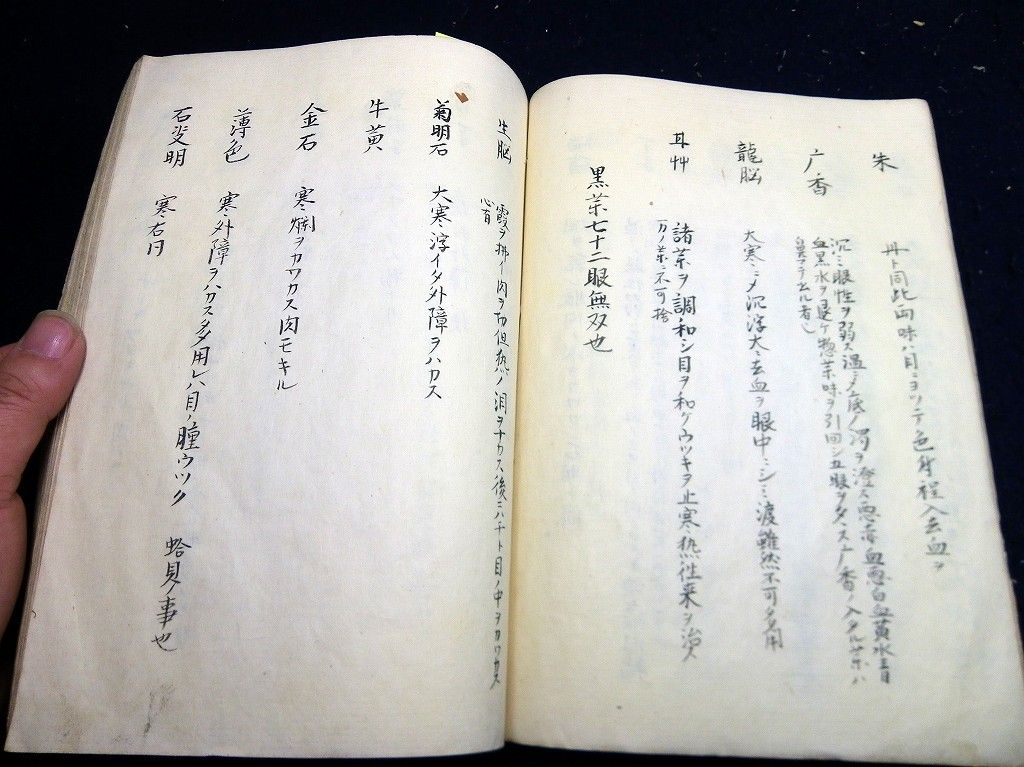 朱
丹ト同此両味ハ目ニヨツテ色身程入去血ヲ
广香
沉ニメ眼性ヲ弱ス温ニメ底ノ濁ヲ澄ス悪毒血悪白血黄水青
血黒水ヲ退ケ惣薬味ヲ引回シ五眼ヲタスス广香ノ入タル薬ハ
龍脳
大寒ニメ沉浮大ニ去血ヲ眼中ニシミ渡雖然不可多用
甘艸
諸薬ヲ調和シ目ヲ和ケウツキヲ止寒熱往来ヲ治ス
万ノ薬ニ不可捨
黒薬七十二眼無双也
生脳
霞ヲ拂イ肉ヲ切但熱ノ泪ヲナカス後ニハチト目ノ中ヲカワカス
心有
菊明石
大寒浮イタ外障ヲハカス
牛黄
金石
寒爛ヲカワカス肉モキル
薄色
寒外障ヲハカス多用レハ目ノ瞳ウツク
石决明
寒右同
蛤貝ノ事也